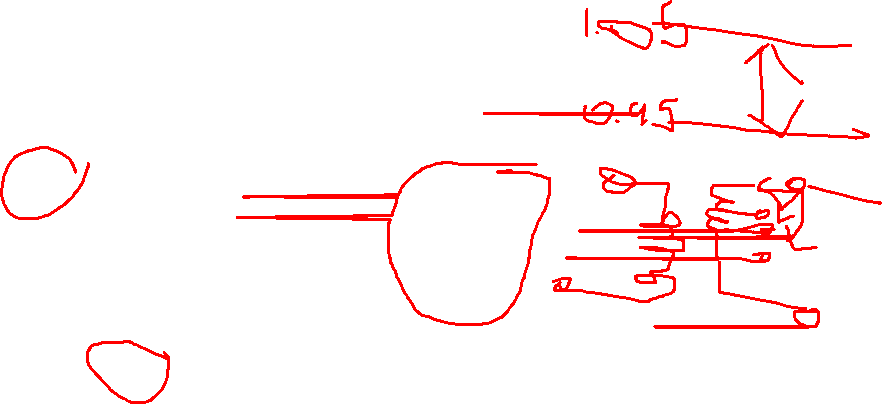 1.05
0.95